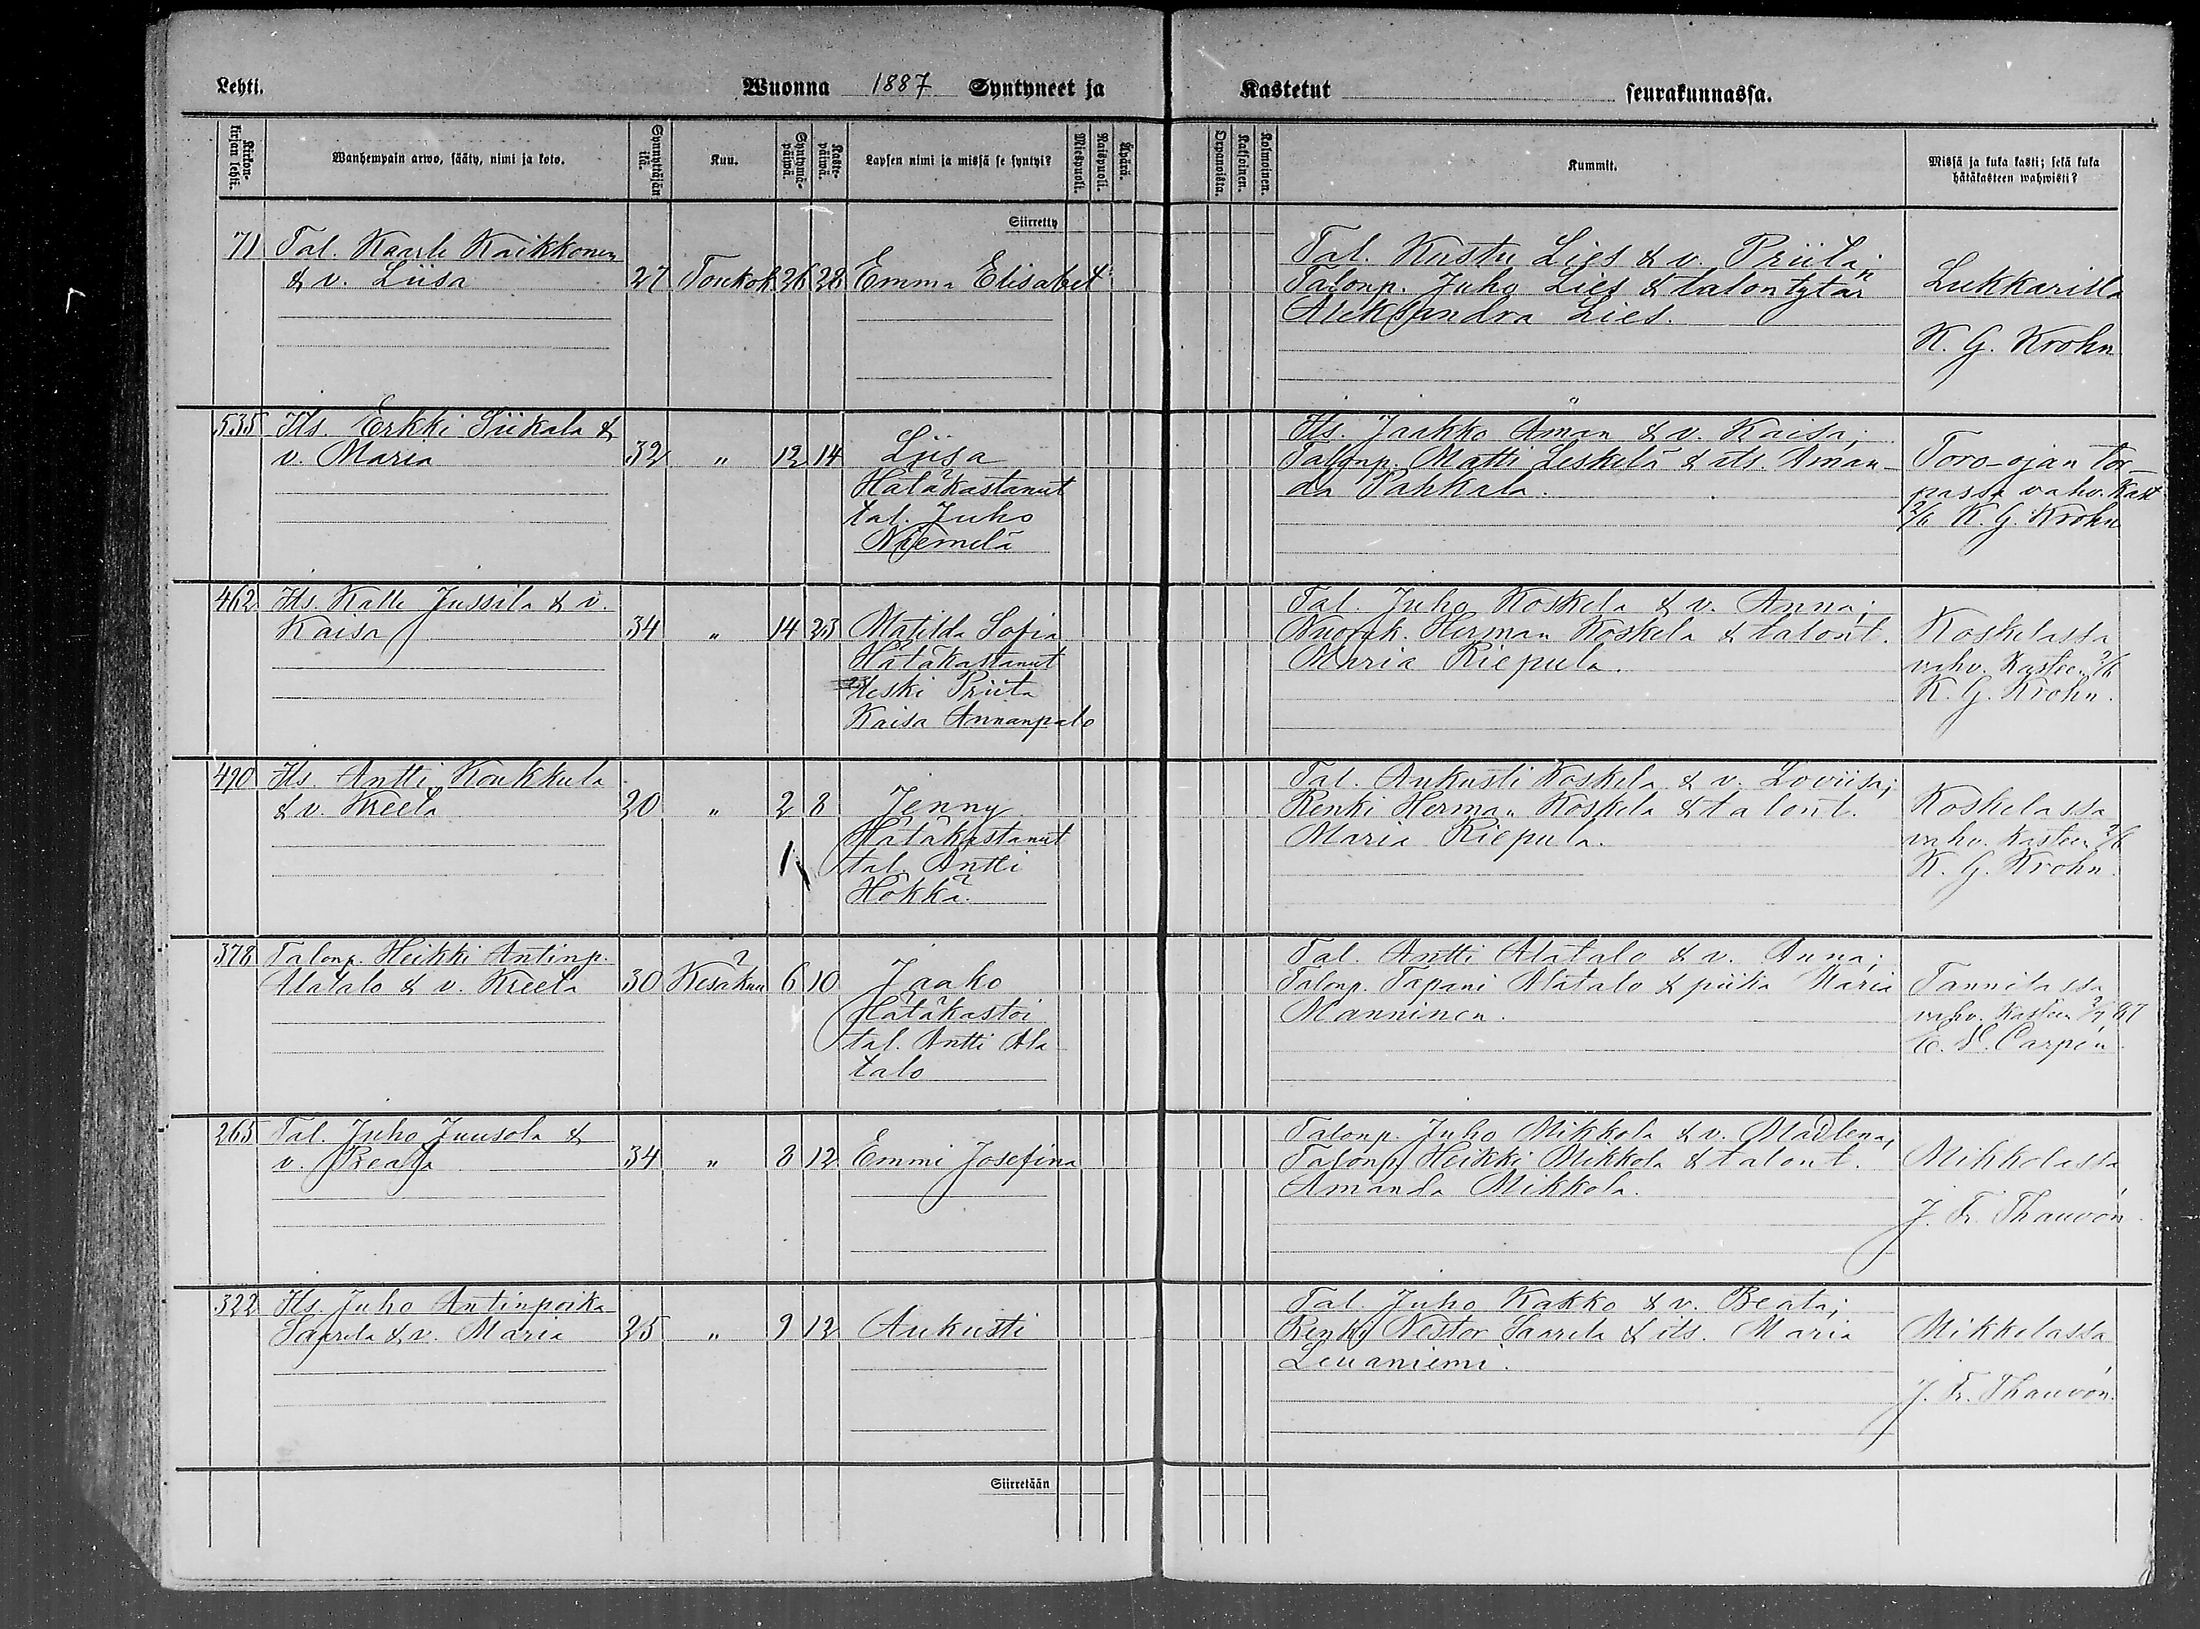 Lehti. Wuonna 1887 Syntyneet ja Kastetut seurakunnassa.
Kirkonkirjan lehti. Wanhempain arwo, sääty, nimi ja koto. Synnyttäjän ikä. Kuu. Syntymäpäiwä. Kastepäiwä. Lapsen nimi ja missä se syntyi? Miespuoli. Naispuoli. Äpärä. Orpanoista. Kaksoinen. Kolmoinen. Kummit. Missä ja kuka kasti; sekä kuka hätäkasteen wahwisti?
Siirretty
71 Tal. Kaarle Kaikkonen
& v. Liisa 27 Toukok. 26 28 Emma Elisabet
Tal. Kustu Lies & v. Priita;
Talonp. Juho Lies & talontytär
Aleksandra Lies.
Lukkarilla
K. G. Krohn
535 Its. Erkki Siikala &
v. Maria 32 " 12 14 Liisa
Hätäkastanut
tal. Juho
Niemelä
Its. Jaakko Aman & v. Kaisa;
Talonp. Matti Leskelä & its. Aman-
da Pahkala.
Toro-ojan tor-
passa vahv. Kast
2/6 K. G. Krohn
462 Its. Kalle Jussila & v.
Kaisa 34 " 14 23 Matilda Sofia
Hätäkastanut
leski Priita
Kaisa Annanpalo
Tal. Juho Koskela & v. Anna;
Nuoruk. Herman Koskela & talont.
Maria Riepula.
Koskelassa
vahv. Kasteen 2/6
K. G. Krohn.
490 Its. Antti Koukkula
& v. Kreeta 20 " 2 8 Jenny
Hätäkastanut
tal. Antti
Hökkä.
Tal. Aukusti Koskela & v. Loviisa;
Renki Herman Koskela & talont.
Maria Riepula.
Koskelassa
vahv. Kasteen 2/6
K. G. Krohn.
378 Talonp. Heikki Antinp.
Alatalo & v. Kreeta 30 Kesäkuu 6 10 Jaako
Hätäkastoi
tal. Antti Ala
talo
Tal. Antti Alatalo & v. Anna;
Talonp. Tapani Alatalo & piika Maria
Manninen.
Tannilassa
vahv. Kasteen
E. S. Carpén
265 Tal. Juho Juusola &
v. Beata 34 " 8 12 Emmi Josefina
Talonp. Juho Mikkola & v. Madlena,
Talonp. Heikki Mikkola & talont.
Amanda Mikkola.
Mikkolassa
J. Fr. Thauvón
322 Its. Juho Antinpoika
Saarela & v. Maria 25 " 9 12 Aukusti
Tal. Juho Kakko & v. Beata;
Renki Nestor Saarela & its. Maria
Leuaniemi.
Mikkolassa
J. Fr. Thauvón.
Siirretään